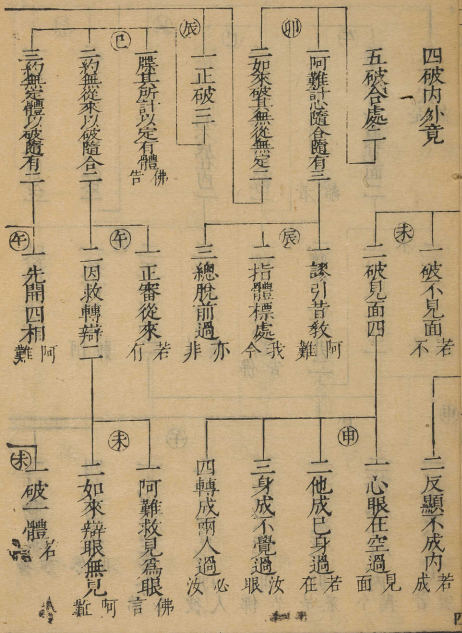 四破內外竟
五破合處二
卯
一阿難計心隨合隨有三
二如來破其無從無定二
辰
一正破三
一牒其所計以定有體 佛告
巳
二約無從來以破隨合二
三約無定體以破隨有二
一破不見面 若不
未
二破見面四
一謬引昔教 阿難
辰
二指體標處 我今
三總脫前過 亦非
一正審從來 若有
午
二因救轉辯二
一先開四相 阿難
午
二反顯不成內 若成
一心眼在空過 見面
申
二他成己身過 若在
三身成不覺過 汝眼
四轉成兩人過 必汝
一阿難救見為眼 佛言
未
二如來辯眼無見 阿難
一破一體 若
未
四